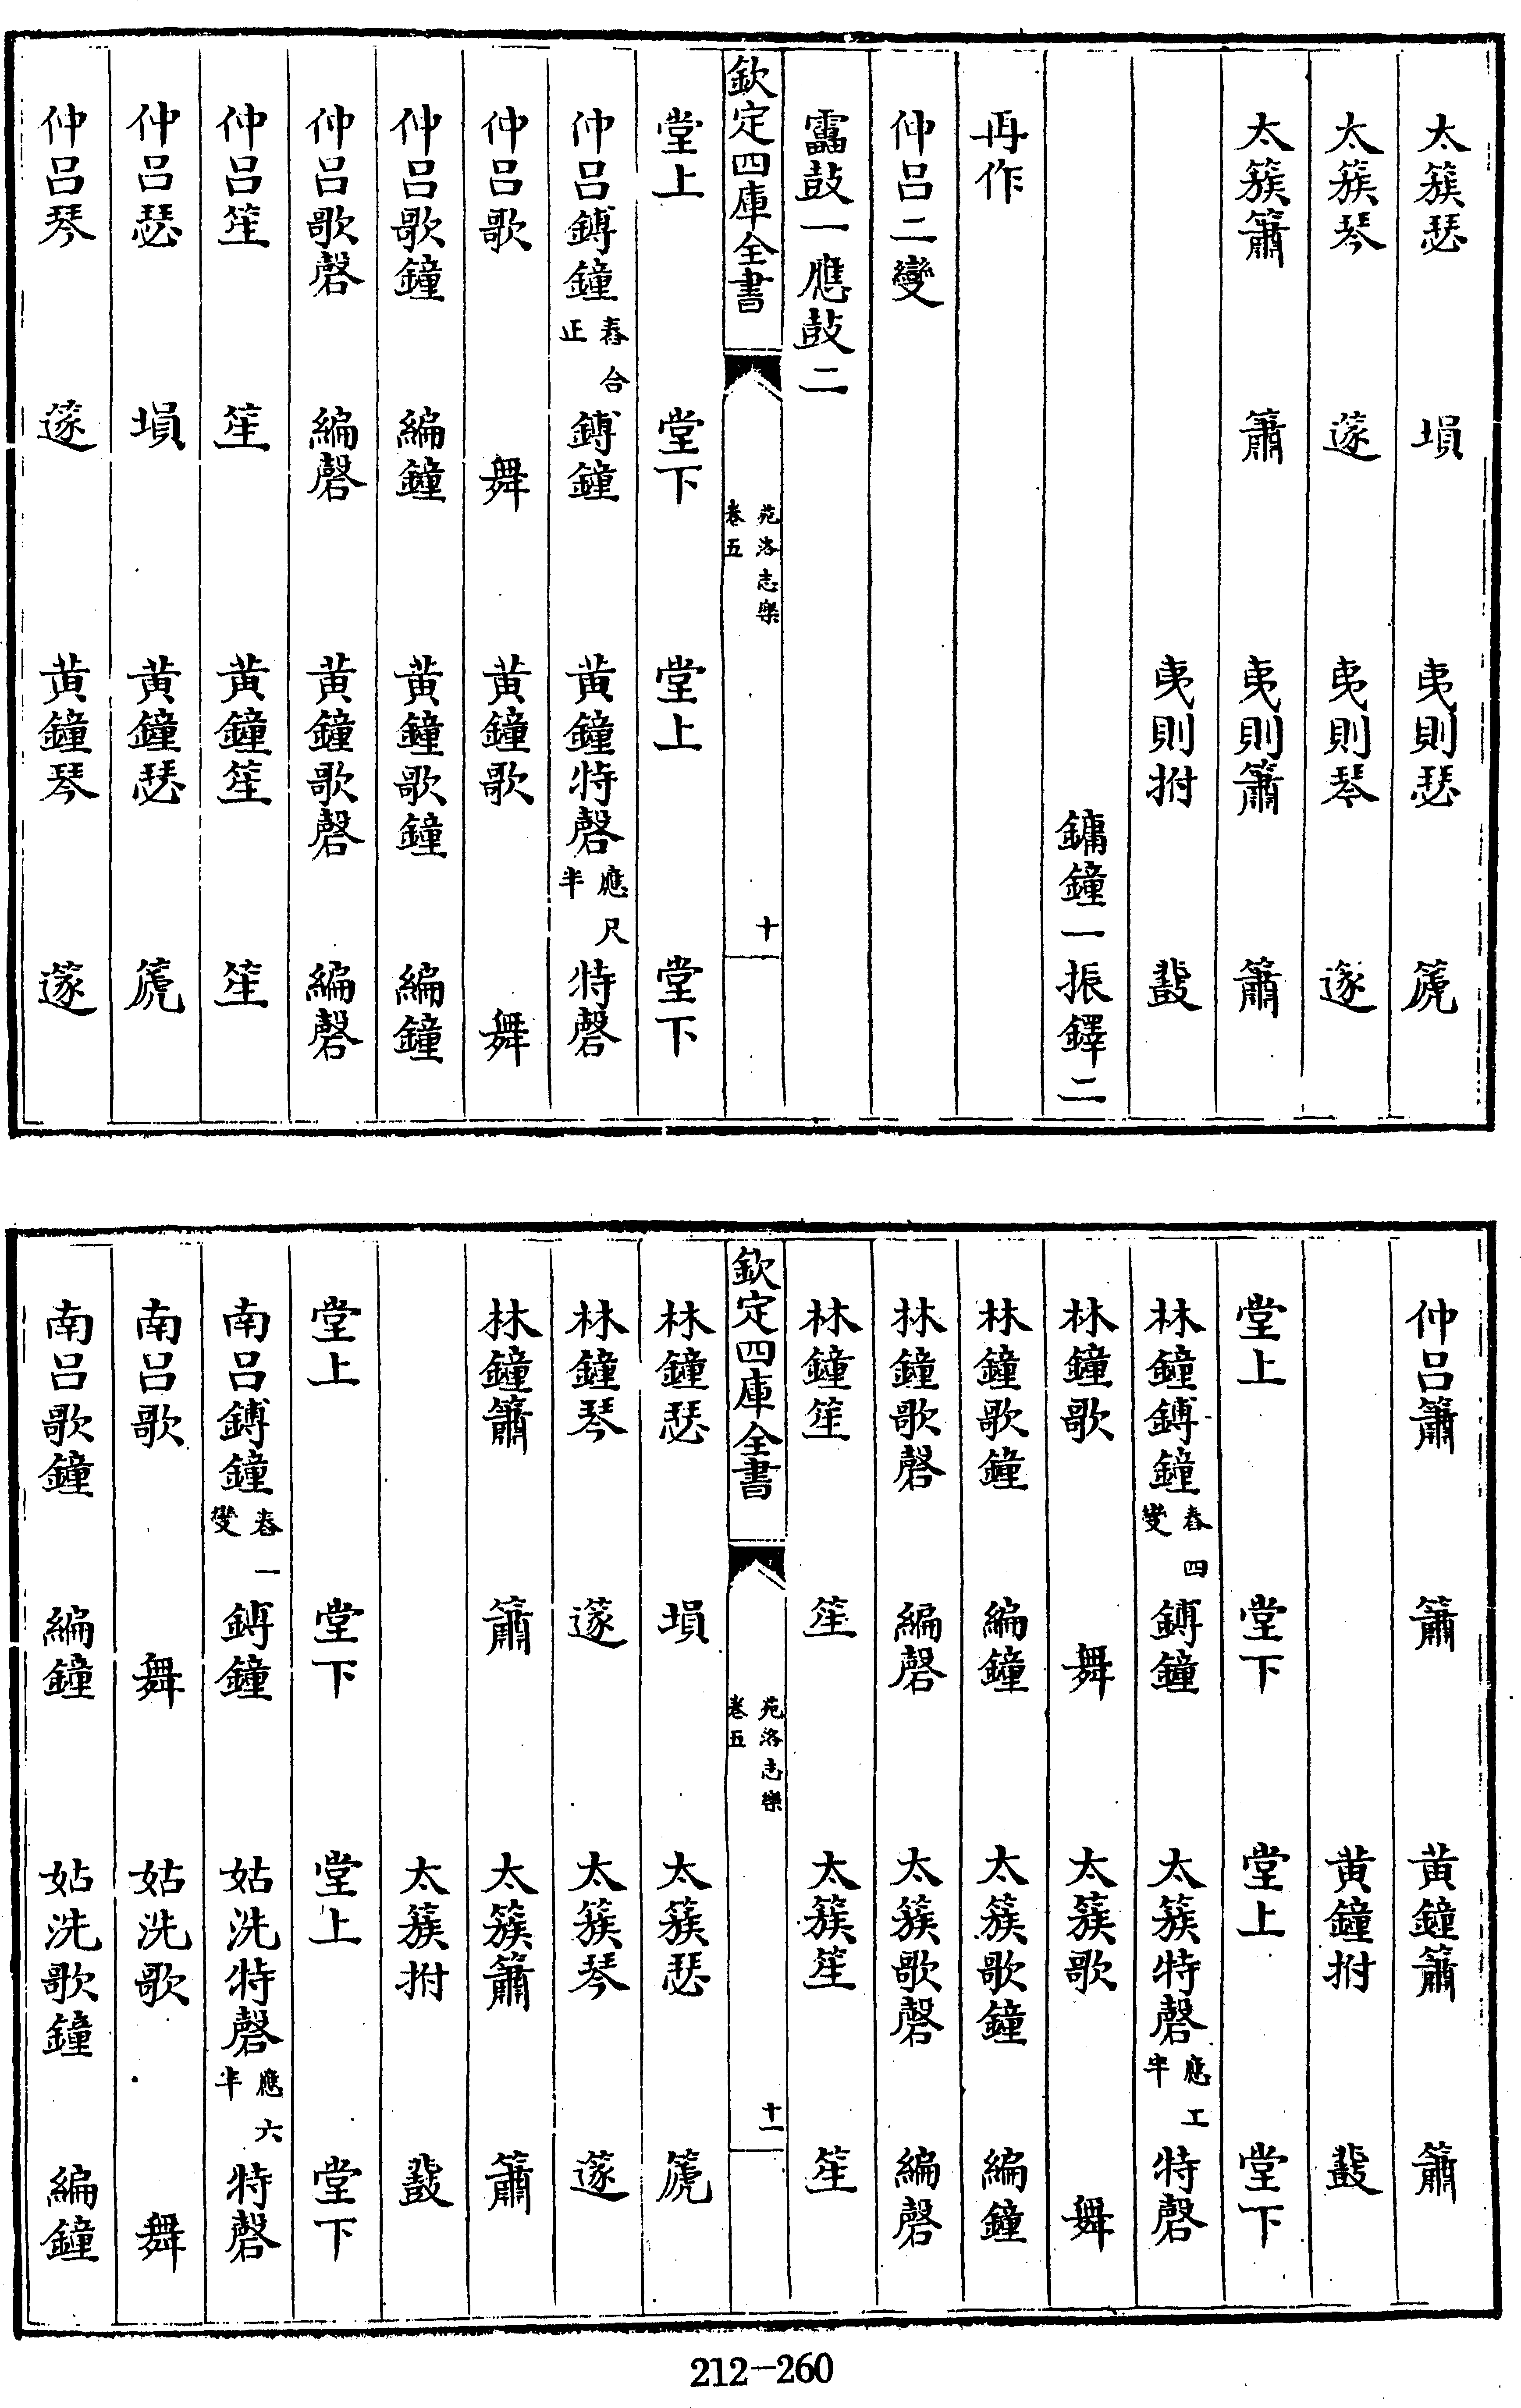 太簇瑟　塤　夷則瑟　篪
太簇琴　篴　夷則琴　篴
太簇簫　簫　夷則簫　簫
夷則拊　鼗
鏞鐘一振鐸二
再作
仲呂二變
靁鼓一應鼓二
欽定四庫全書　苑洛志樂卷五　十
堂上　堂下　堂上　堂下
仲呂鎛鐘舂合正　鎛鐘　黃鐘特磬應尺半　特磬
仲呂歌　舞　黃鐘歌　舞
仲呂歌鐘　編鐘　黃鐘歌鐘　編鐘
仲呂歌磬　編磬　黃鐘歌磬　編磬
仲呂笙　笙　黃鐘笙　笙
仲呂瑟　塤　黃鐘瑟　篪
仲呂琴　篴　黃鐘琴　篴
仲呂簫　簫　黃鐘簫　簫
黃鐘拊　鼗
堂上　堂下　堂上　堂下
林鐘鎛鐘舂四變　鎛鐘　太簇特磬應工半　特磬
林鐘歌　舞　太簇歌　舞
林鐘歌鐘　編鐘　太簇歌鐘　編鐘
林鐘歌磬　編磬　太簇歌磬　編磬
林鐘笙　笙　太簇笙　笙
欽定四庫全書　苑洛志樂卷五　十一
林鐘瑟　塤　太簇瑟　篪
林鐘琴　篴　太簇琴　篴
林鐘簫　簫　太簇簫　簫
太簇拊　鼗
堂上　堂下　堂上　堂下
南呂鎛鐘舂一變　鎛鐘　姑洗特磬應六半　特磬
南呂歌　舞　姑洗歌　舞
南呂歌鐘　編鐘　姑洗歌鐘　編鐘
212-260